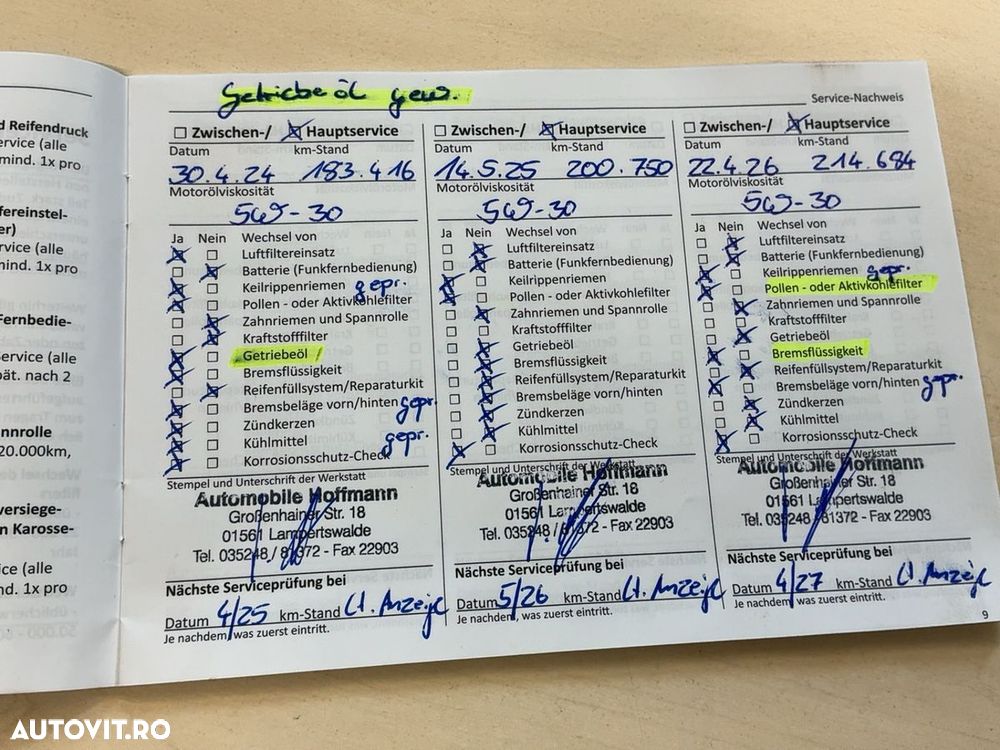 d Reifendruck
ervice (alle
mind. 1x pro
fereinstel-
er)
rvice (alle
mind. 1x pro
Fernbedie-
Service (alle
pät. nach 2
nnrolle
20.000km,
versiege-
n Karosse-
ice (alle
d. 1x pro
Getriebeöl gew.
Service-Nachweis
Zwischen-/ Hauptservice
Datum km-Stand
30.4.24 183.416
Motorölviskosität
5W-30
Ja Nein Wechsel von
Luftfiltereinsatz
Batterie (Funkfernbedienung)
Keilrippenriemen gepr.
Pollen - oder Aktivkohlefilter
Zahnriemen und Spannrolle
Kraftstofffilter
Getriebeöl
Bremsflüssigkeit
Reifenfüllsystem/Reparaturkit
Bremsbeläge vorn/hinten gepr.
Zündkerzen
Kühlmittel gepr.
Korrosionsschutz-Check
Stempel und Unterschrift der Werkstatt
Automobile Hoffmann
Großenhainer Str. 18
01561 Lampertswalde
Tel. 035248 / 81372 - Fax 22903
Nächste Serviceprüfung bei
Datum 4/25 km-Stand lt. Anzeige
Je nachdem, was zuerst eintritt.
Zwischen-/ Hauptservice
Datum km-Stand
14.5.25 200.750
Motorölviskosität
5W-30
Ja Nein Wechsel von
Luftfiltereinsatz
Batterie (Funkfernbedienung)
Keilrippenriemen
Pollen - oder Aktivkohlefilter
Zahnriemen und Spannrolle
Kraftstofffilter
Getriebeöl
Bremsflüssigkeit
Reifenfüllsystem/Reparaturkit
Bremsbeläge vorn/hinten
Zündkerzen
Kühlmittel
Korrosionsschutz-Check
Stempel und Unterschrift der Werkstatt
Automobile Hoffmann
Großenhainer Str. 18
01561 Lampertswalde
Tel. 035248 / 81372 - Fax 22903
Nächste Serviceprüfung bei
Datum 5/26 km-Stand lt. Anzeige
Je nachdem, was zuerst eintritt.
Zwischen-/ Hauptservice
Datum km-Stand
22.4.26 214.684
Motorölviskosität
5W-30
Ja Nein Wechsel von
Luftfiltereinsatz
Batterie (Funkfernbedienung)
Keilrippenriemen gepr.
Pollen - oder Aktivkohlefilter
Zahnriemen und Spannrolle
Kraftstofffilter
Getriebeöl
Bremsflüssigkeit
Reifenfüllsystem/Reparaturkit
Bremsbeläge vorn/hinten gepr.
Zündkerzen
Kühlmittel
Korrosionsschutz-Check
Stempel und Unterschrift der Werkstatt
Automobile Hoffmann
Großenhainer Str. 18
01561 Lampertswalde
Tel. 035248 / 81372 - Fax 22903
Nächste Serviceprüfung bei
Datum 4/27 km-Stand lt. Anzeige
Je nachdem, was zuerst eintritt.
9
AUTOVIT.RO